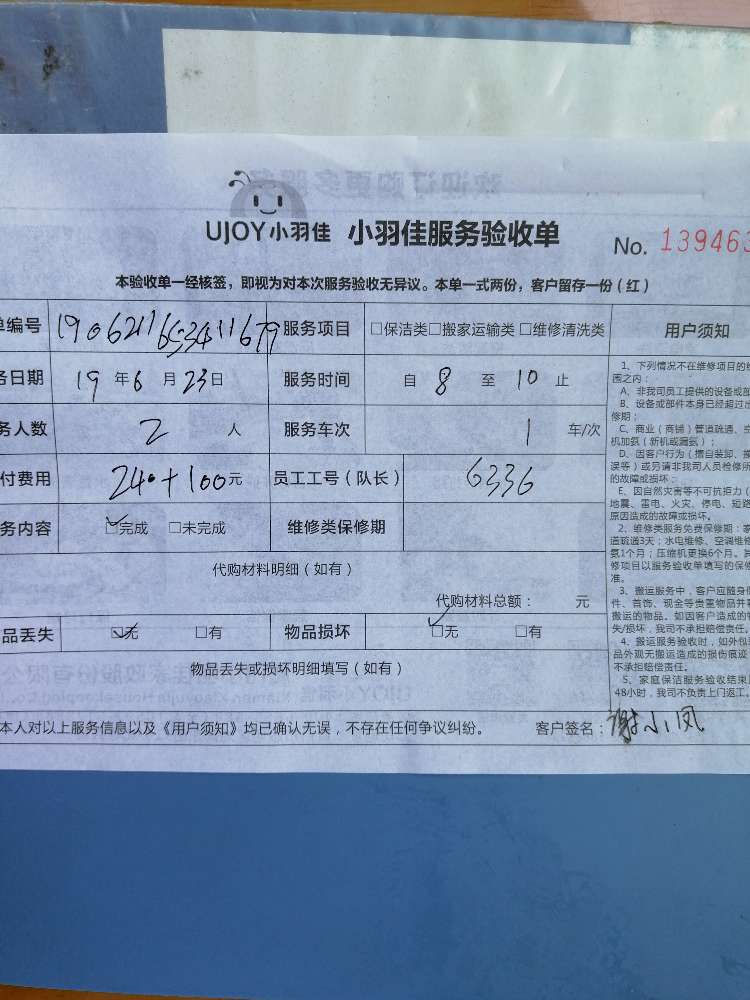 UJOY小羽佳 小羽佳服务验收单 No. 139463
本验收单一经核签，即视为对本次服务验收无异议。本单一式两份，客户留存一份（红）
单编号 服务项目 □保洁类□搬家运输类□维修清洗类 用户须知
务日期 19年6月23日 服务时间 自8至10止
务人数 2人 服务车次 1车/次
付费用 240+100元 员工工号（队长） 6336
务内容 ☑完成 □未完成 维修类保修期
代购材料明细（如有）
代购材料总额： 元
品丢失 ☑无 □有 物品损坏 ☑无 □有
物品丢失或损坏明细填写（如有）
本人对以上服务信息以及《用户须知》均已确认无误，不存在任何争议纠纷。 客户签名：谢小凤
1、下列情况不在维修项目的
围之内：
A、非我司员工提供的设备或部
B、设备或部件本身已经超过
修期；
C、商业（商铺）管道疏通、
机加氨（新机或漏氨）；
D、因客户行为（擅自装卸、
误等）或另请非我司人员检修所
的故障或损坏；
E、因自然灾害等不可抗拒力（
地震、雷电、火灾、停电、短路
原因造成的故障或损坏。
2、维修类服务免费保修期：
道疏通3天；水电维修、空调维修
氨1个月；压缩机更换6个月。其
修项目以服务验收单填写的保修
准。
3、搬运服务中，客户应随身
件、首饰、现金等贵重物品并
搬运的物品。如因客户造成的
失/损坏，我司不承担赔偿责任。
4、搬运服务验收时，如外包
品外观无搬运造成的损伤痕迹
不承担赔偿责任。
5、家庭保洁服务验收结束
48小时，我司不负责上门返工。